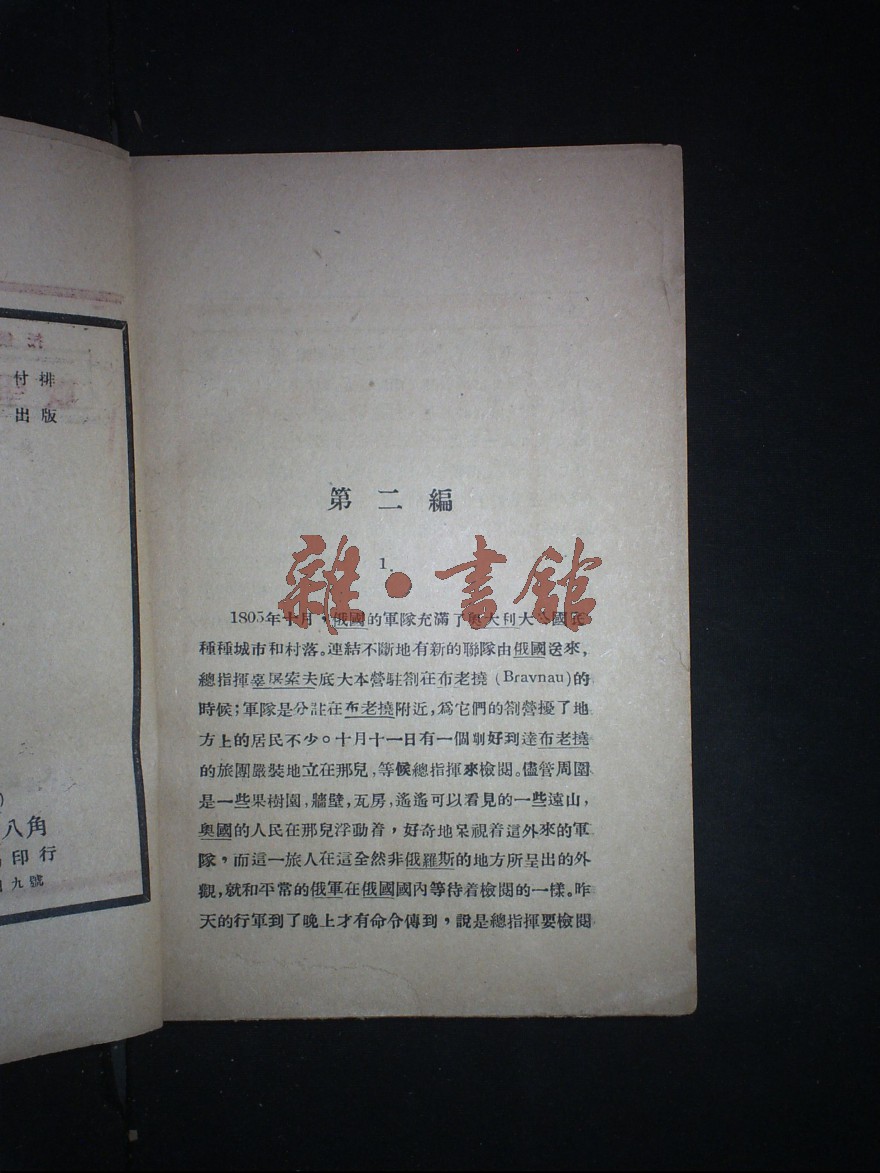 付排
出版
八角
印行
九號
第二編
1.
雜·書館
1805年十月，俄國的軍隊充滿了奧大利大公國底
種種城市和村落。連結不斷地有新的聯隊由俄國送來，
總指揮辜屠索夫底大本營駐劄在布老撓（Bravnau）的
時候；軍隊是分註在布老撓附近，爲它們的劄營擾了地
方上的居民不少。十月十一日有一個剛好到達布老撓
的旅團嚴裝地立在那兒，等候總指揮來檢閱。儘管周圍
是一些果樹園，牆壁，瓦房，遙遙可以看見的一些遠山，
奧國的人民在那兒浮動着，好奇地呆視着這外來的軍
隊，而這一旅人在這全然非俄羅斯的地方所呈出的外
觀，就和平常的俄軍在俄國國內等待着檢閱的一樣。昨
天的行軍到了晚上才有命令傳到，說是總指揮要檢閱